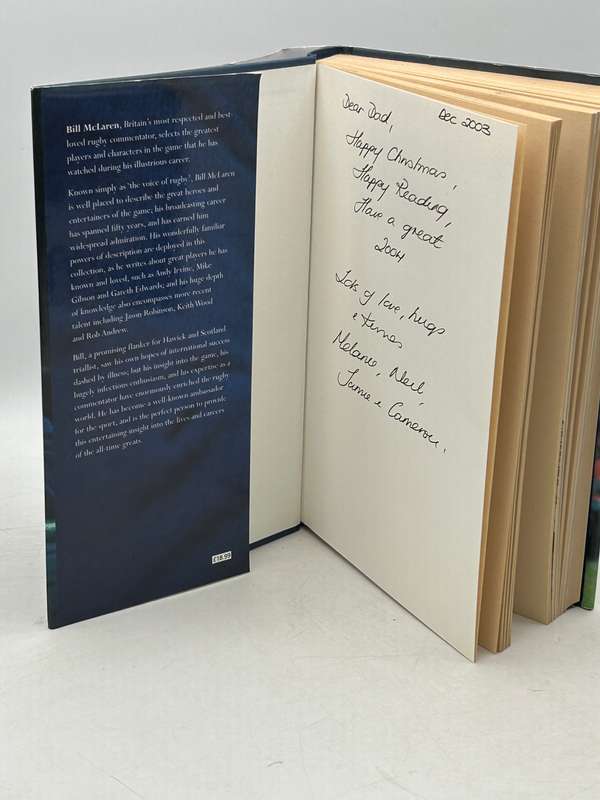 Bill McLaren, Britain's most respected and best-
loved rugby commentator, selects the greatest
players and characters in the game that he has
watched during his illustrious career.
Known simply as 'the voice of rugby', Bill McLaren
is well placed to describe the great heroes and
entertainers of the game; his broadcasting career
has spanned fifty years, and has earned him
widespread admiration. His wonderfully familiar
powers of description are deployed in this
collection, as he writes about great players he has
known and loved, such as Andy Irvine, Mike
Gibson and Gareth Edwards; and his huge depth
of knowledge also encompasses more recent
talent including Jason Robinson, Keith Wood
and Rob Andrew.
Bill, a promising flanker for Hawick and Scotland
triallist, saw his own hopes of international success
dashed by illness; but his insight into the game, his
hugely infectious enthusiasm, and his expertise as a
commentator have enormously enriched the rugby
world. He has become a well-known ambassador
for the sport, and is the perfect person to provide
this entertaining insight into the lives and careers
of the all-time greats.
£18.99
Dec 2003
Dear Dad,
Happy Christmas,
Happy Reading,
Have a great
2004
Lots of love, hugs
Melanie, Neil,
Jamie & Cameron.